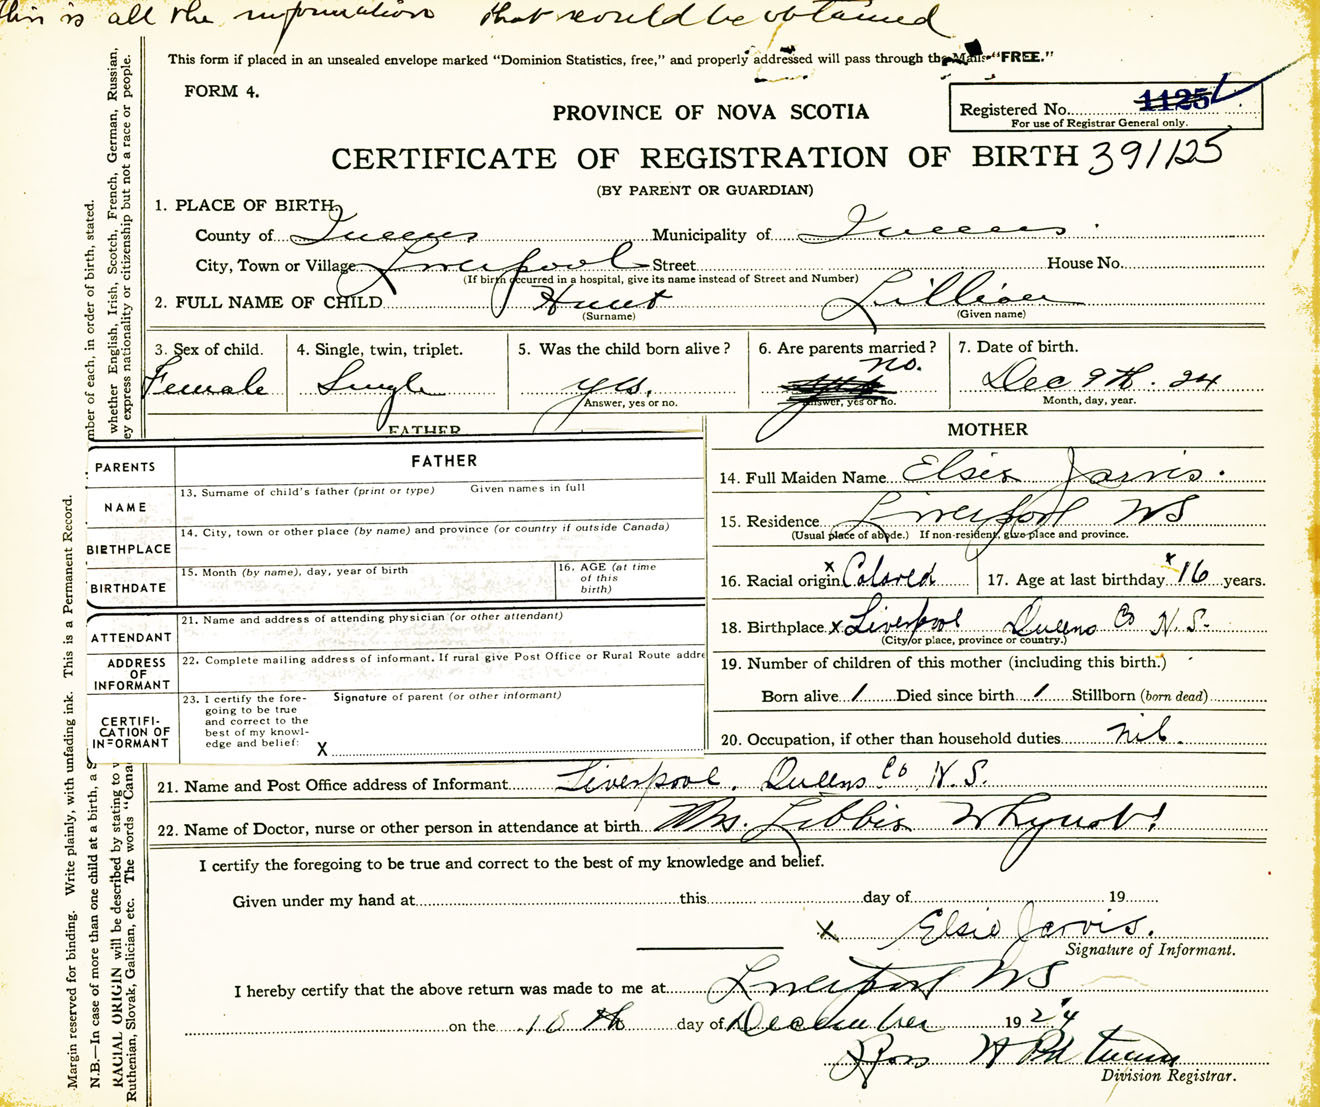 this is all the information that could be obtained
This form if placed in an unsealed envelope marked “Dominion Statistics, free,” and properly addressed will pass through the Mails “FREE.”
FORM 4.
PROVINCE OF NOVA SCOTIA
Registered No. 1125
For use of Registrar General only.
CERTIFICATE OF REGISTRATION OF BIRTH 391125
(BY PARENT OR GUARDIAN)
1. PLACE OF BIRTH
County of Queens Municipality of Queens
City, Town or Village Liverpool Street House No.
(If birth occurred in a hospital, give its name instead of Street and Number)
2. FULL NAME OF CHILD Hunt Lillian
(Surname) (Given name)
3. Sex of child. 4. Single, twin, triplet. 5. Was the child born alive? 6. Are parents married? 7. Date of birth.
no.
Female Single yes. Dec 9th. 24
Answer, yes or no. Answer, yes or no. Month, day, year.
FATHER MOTHER
PARENTS FATHER
14. Full Maiden Name Elsie Jarvis.
NAME 13. Surname of child's father (print or type) Given names in full
15. Residence Liverpool NS
(Usual place of abode.) If non-resident, give place and province.
BIRTHPLACE 14. City, town or other place (by name) and province (or country if outside Canada)
BIRTHDATE 15. Month (by name), day, year of birth 16. AGE (at time of this birth)
16. Racial origin x Colored 17. Age at last birthday x 16 years.
ATTENDANT 21. Name and address of attending physician (or other attendant)
18. Birthplace x Liverpool Queens Co N.S.
(City or place, province or country.)
ADDRESS OF INFORMANT 22. Complete mailing address of informant. If rural give Post Office or Rural Route addre
19. Number of children of this mother (including this birth.)
Born alive 1 Died since birth / Stillborn (born dead)
CERTIFI-CATION OF INFORMANT 23. I certify the fore-
going to be true
and correct to the
best of my knowl-
edge and belief:
Signature of parent (or other informant)
X
20. Occupation, if other than household duties nil.
21. Name and Post Office address of Informant Liverpool, Queens Co N.S.
22. Name of Doctor, nurse or other person in attendance at birth Mrs. Libbie Whynot
I certify the foregoing to be true and correct to the best of my knowledge and belief.
Given under my hand at this day of 19
X Elsie Jarvis.
Signature of Informant.
I hereby certify that the above return was made to me at Liverpool NS
on the 18th day of December 1924
Division Registrar.
Margin reserved for binding. Write plainly, with unfading ink. This is a Permanent Record.
N.B.—In case of more than one child at a birth, a S
mber of each, in order of birth, stated.
RACIAL ORIGIN will be described by stating to w
whether English, Irish, Scotch, French, German, Russian,
Ruthenian, Slovak, Galician, etc. The words “Cana
ey express nationality or citizenship but not a race or people.